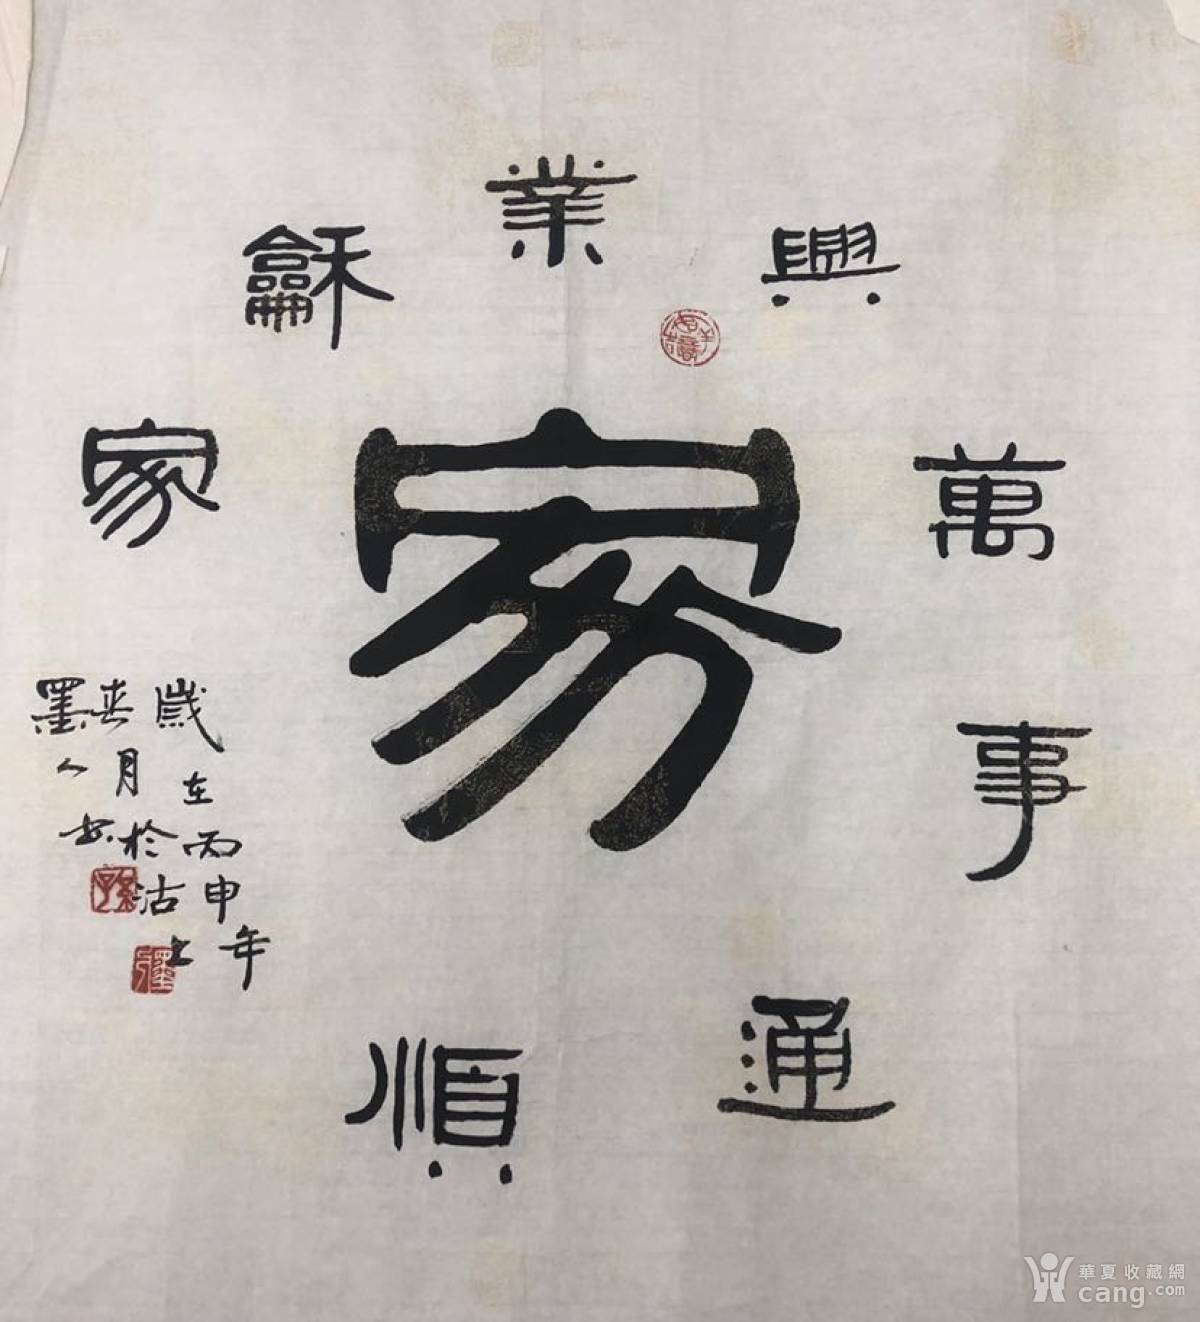 家
家龢業興
萬事通順
歲在丙申年
春月於沽上
墨人书
華夏收藏網
cang.com